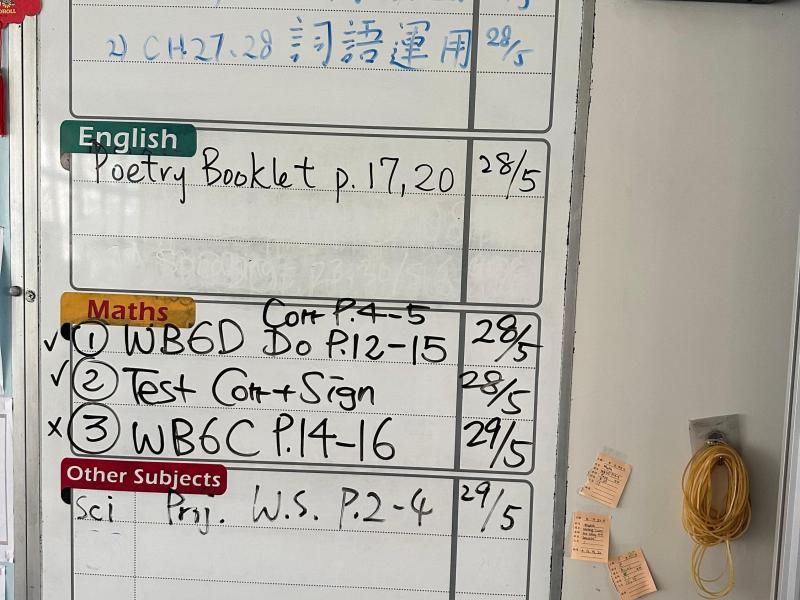 2) CH.27.28 詞語運用 28/5
English
Poetry Booklet p.17,20 28/5
Maths
Corr P.4-5
✓ ① WB6D Do P.12-15 28/5
✓ ② Test Corr + Sign 28/5
x ③ WB6C P.14-16 29/5
Other Subjects
Sci Proj. W.S. P.2-4 29/5